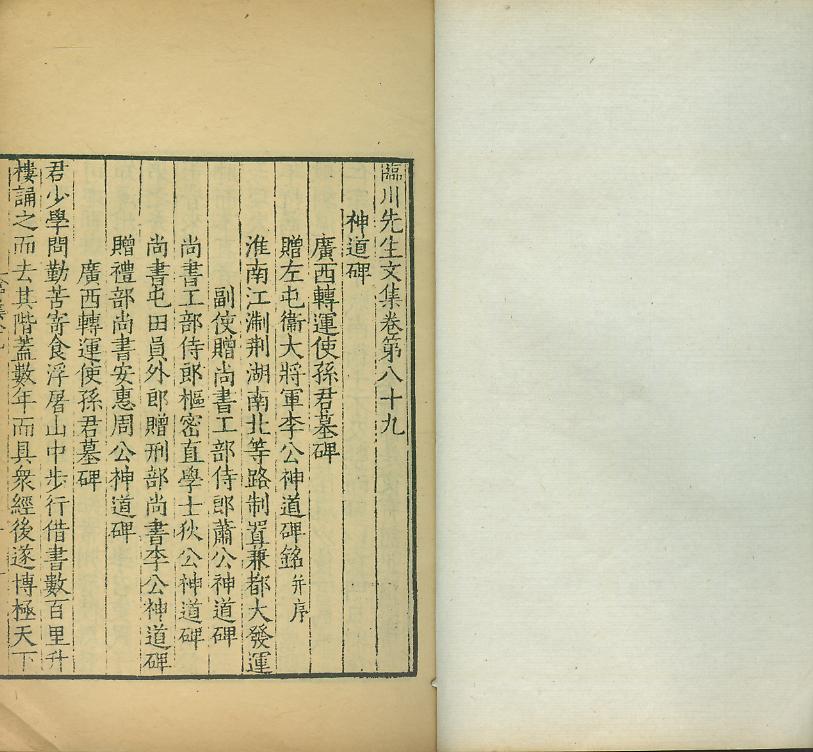 臨川先生文集卷第八十九
神道碑
廣西轉運使孫君墓碑
贈左屯衞大將軍李公神道碑銘并序
淮南江淛荆湖南北等路制置兼都大發運
副使贈尚書工部侍郎蕭公神道碑
尚書工部侍郎樞密直學士狄公神道碑
尚書屯田員外郎贈刑部尚書李公神道碑
贈禮部尚書安惠周公神道碑
廣西轉運使孫君墓碑
君少學問勤苦寄食浮屠山中步行借書數百里升
樓誦之而去其階蓋數年而具衆經後遂博極天下